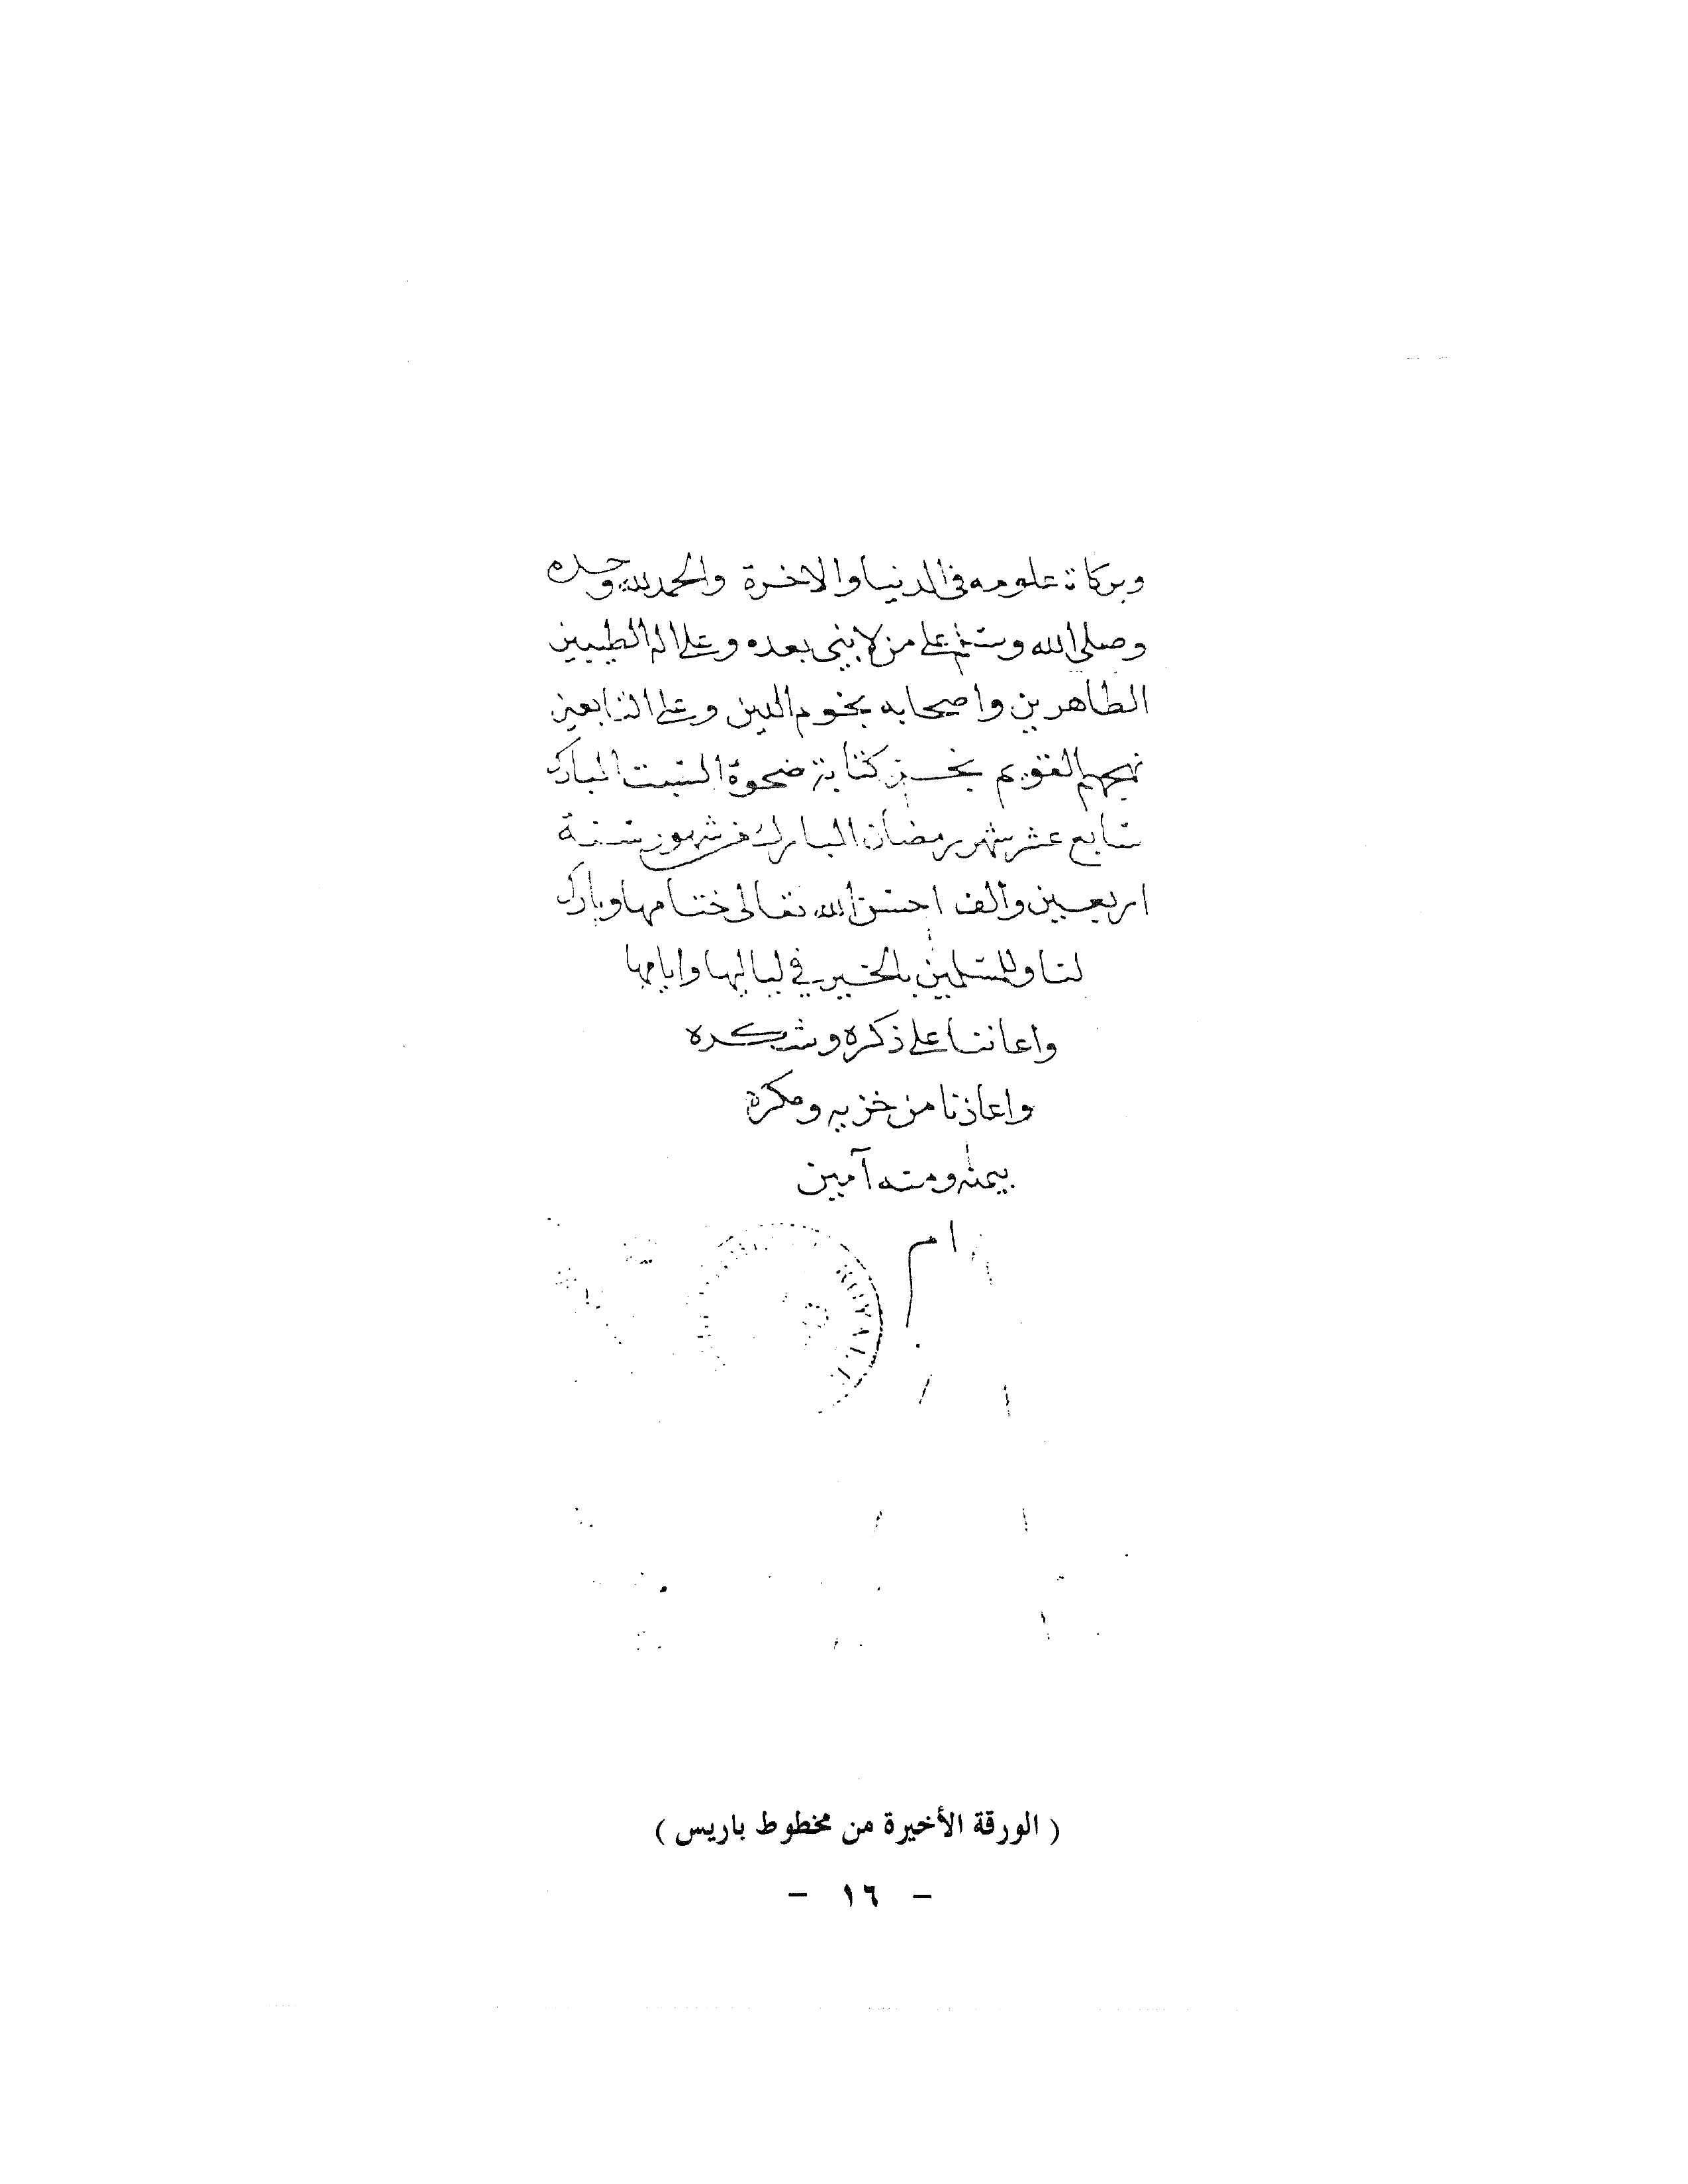 وبركاة علومه في الدنيا والاخرة والحمد لله وحده
وصلى الله وسلم على من لا نبي بعده وعلى اله الطيبين
الطاهرين واصحابه نجوم الدين وعلى التابعين
نهجهم القويم نجز كتابة ضحوة السبت المبارك
سابع عشر شهر رمضان المبارك من شهور سنة
اربعين وألف احسن الله تعالى ختامها وبارك
لنا وللمسلمين بالخير في لياليها وايامها
واعاننا على ذكره وشكره
واعاذنا من خزيه ومكره
بيمنه ومنه آمين
ام
( الورقة الأخيرة من مخطوط باريس )
- ١٦ -